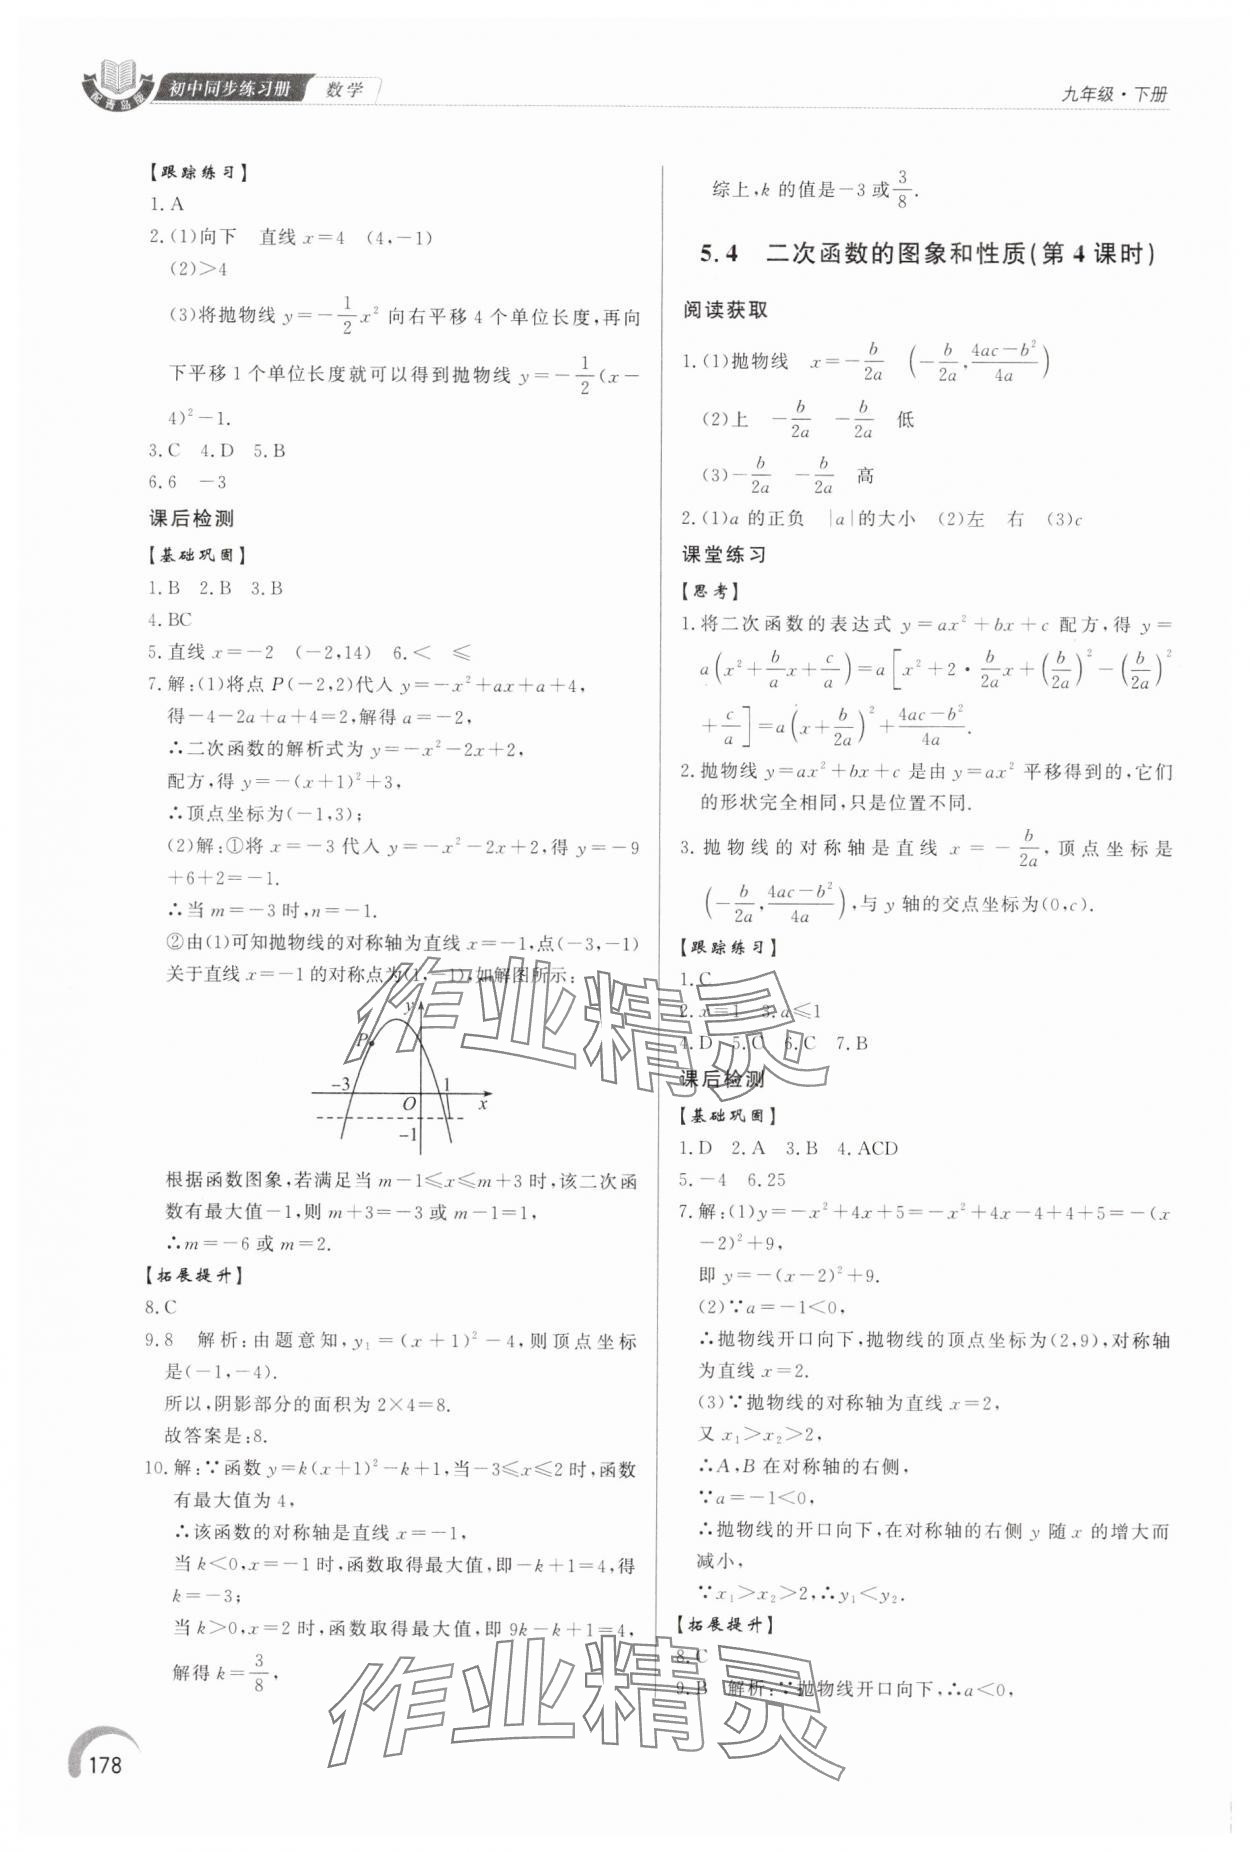 配青岛版
初中同步练习册 数学
九年级·下册
【跟踪练习】
1.A
2.(1)向下 直线 x=4 (4,-1)
(2)>4
(3)将抛物线 y=-1/2x² 向右平移 4 个单位长度,再向
下平移 1 个单位长度就可以得到抛物线 y=-1/2(x-
4)²-1.
3.C 4.D 5.B
6.6 -3
课后检测
【基础巩固】
1.B 2.B 3.B
4.BC
5.直线 x=-2 (-2,14) 6.< ≤
7.解:(1)将点 P(-2,2)代入 y=-x²+ax+a+4,
得-4-2a+a+4=2,解得 a=-2,
∴二次函数的解析式为 y=-x²-2x+2,
配方,得 y=-(x+1)²+3,
∴顶点坐标为(-1,3);
(2)解:①将 x=-3 代入 y=-x²-2x+2,得 y=-9
+6+2=-1.
∴当 m=-3 时,n=-1.
②由(1)可知抛物线的对称轴为直线 x=-1,点(-3,-1)
关于直线 x=-1 的对称点为(1,-1),如解图所示:
y
P
-3 O 1 x
-1
根据函数图象,若满足当 m-1≤x≤m+3 时,该二次函
数有最大值-1,则 m+3=-3 或 m-1=1,
∴m=-6 或 m=2.
【拓展提升】
8.C
9.8 解析:由题意知,y₁=(x+1)²-4,则顶点坐标
是(-1,-4).
所以,阴影部分的面积为 2×4=8.
故答案是:8.
10.解:∵函数 y=k(x+1)²-k+1,当-3≤x≤2 时,函数
有最大值为 4,
∴该函数的对称轴是直线 x=-1,
当 k<0,x=-1 时,函数取得最大值,即-k+1=4,得
k=-3;
当 k>0,x=2 时,函数取得最大值,即 9k-k+1=4,
解得 k=3/8,
178
综上,k 的值是-3 或 3/8.
5.4 二次函数的图象和性质(第 4 课时)
阅读获取
1.(1)抛物线 x=-b/2a (-b/2a,(4ac-b²)/4a)
(2)上 -b/2a -b/2a 低
(3)-b/2a -b/2a 高
2.(1)a 的正负 |a|的大小 (2)左 右 (3)c
课堂练习
【思考】
1.将二次函数的表达式 y=ax²+bx+c 配方,得 y=
a(x²+b/a x+c/a)=a[x²+2·b/2a x+(b/2a)²-(b/2a)²
+c/a]=a(x+b/2a)²+(4ac-b²)/4a.
2.抛物线 y=ax²+bx+c 是由 y=ax² 平移得到的,它们
的形状完全相同,只是位置不同.
3.抛物线的对称轴是直线 x=-b/2a,顶点坐标是
(-b/2a,(4ac-b²)/4a),与 y 轴的交点坐标为(0,c).
【跟踪练习】
1.C
2.x=1 3.a≤1
4.D 5.C 6.C 7.B
课后检测
【基础巩固】
1.D 2.A 3.B 4.ACD
5.-4 6.25
7.解:(1)y=-x²+4x+5=-x²+4x-4+4+5=-(x
-2)²+9,
即 y=-(x-2)²+9.
(2)∵a=-1<0,
∴抛物线开口向下,抛物线的顶点坐标为(2,9),对称轴
为直线 x=2.
(3)∵抛物线的对称轴为直线 x=2,
又 x₁>x₂>2,
∴A,B 在对称轴的右侧,
∵a=-1<0,
∴抛物线的开口向下,在对称轴的右侧 y 随 x 的增大而
减小,
∵x₁>x₂>2,∴y₁<y₂.
【拓展提升】
8.C
9.B 解析:∵抛物线开口向下,∴a<0,
作业精灵
作业精灵